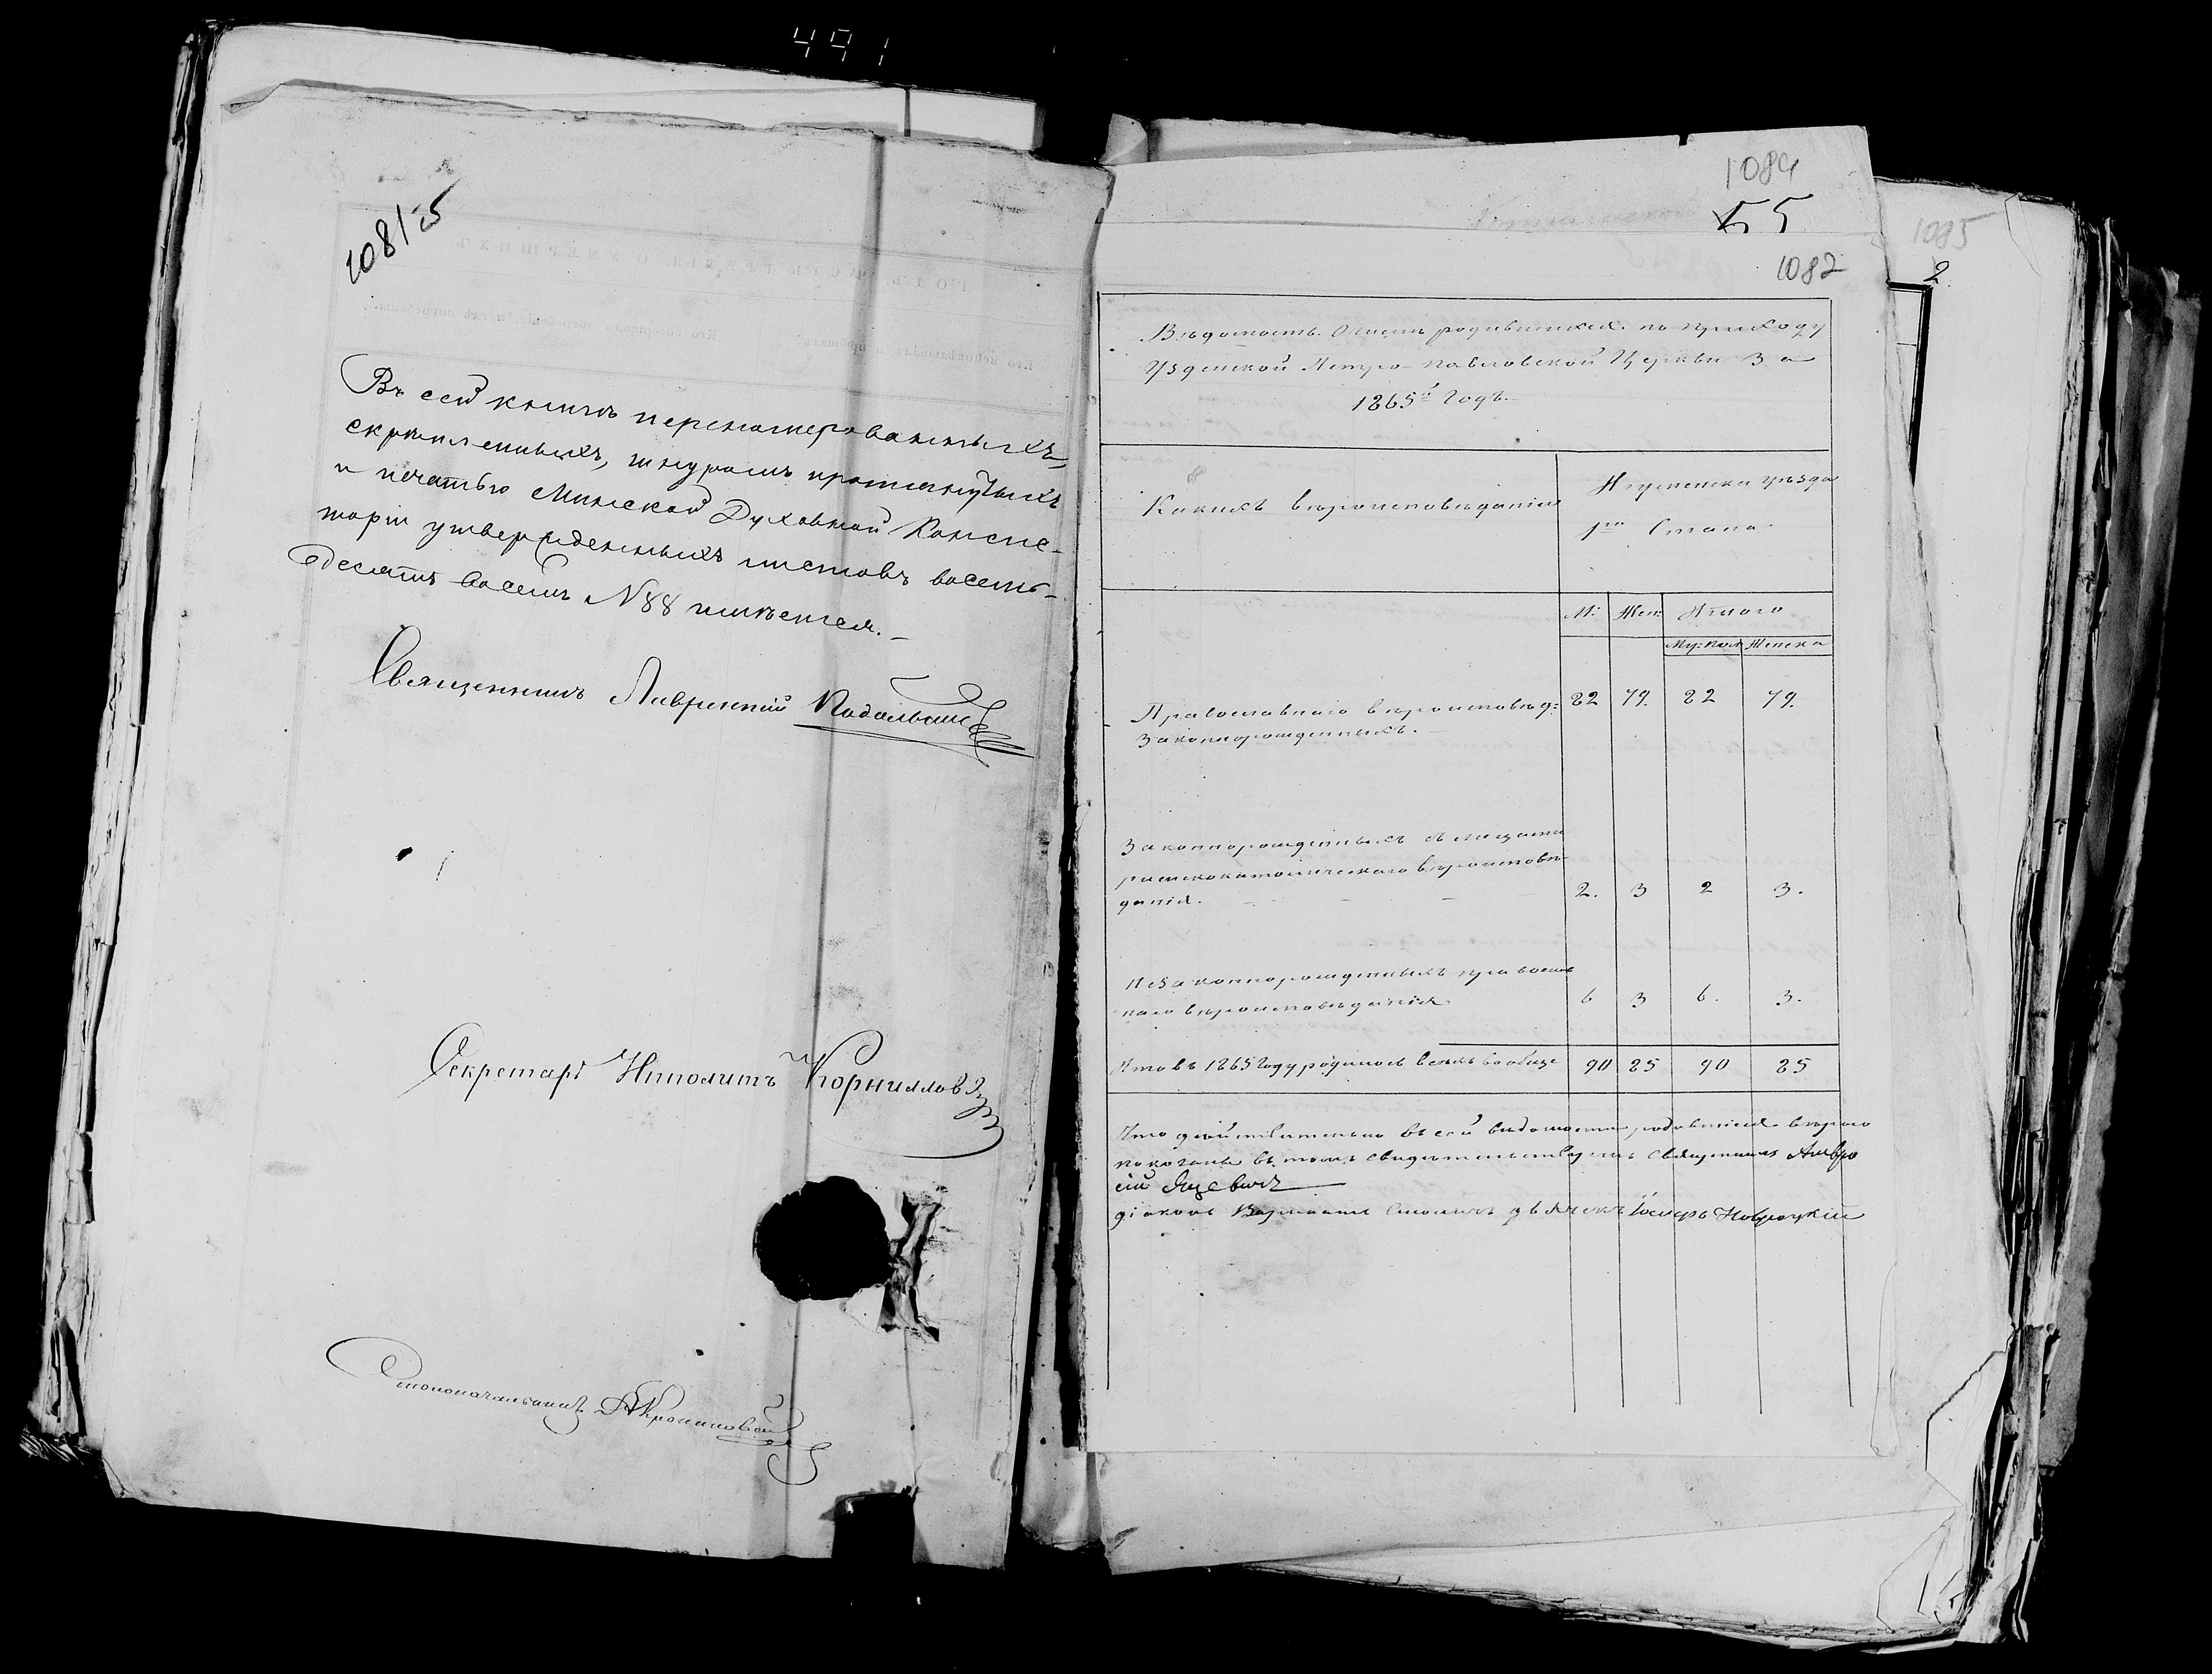 491
1081 об
Въ сей книгѣ перенумерованныхъ,
скрѣпленныхъ, шнуромъ протянутыхъ
и печатью Минской Духовной Консис-
торіи утвержденныхъ листовъ восемь-
десятъ восемь № 88 имѣется.
Священникъ Лаврентій
Секретарь Ипполитъ Корниллов
Столоначальникъ
1084
55
1082
1085
2
Вѣдомость О числѣ родившихся по приходу
Узденской Петро-Павловской Церкви За
1865й Годъ.
Какихъ вѣроисповѣданій
Игуменска уѣзда
1го Стана
М: Жен: Итого
Му: пол Женска
Православнаго вѣроисповѣд: 82 79. 82 79.
Законнорожденныхъ.
Законнорожденныхъ съ лицами
римскокатолическаго вѣроисповѣ-
данія. 2. 3 2 3.
Незаконнорожденныхъ православ
наго вѣроисповѣданія 6 3 6. 3.
Итого въ 1865 Году родилось всѣхъ вообще 90 85 90 85
Что дѣйствительно въ сей вѣдомости родившіеся вѣрно
показаны въ томъ свидѣтельствуемъ Священникъ Амвро
сій
діаконъ дьячекъ Іосифъ